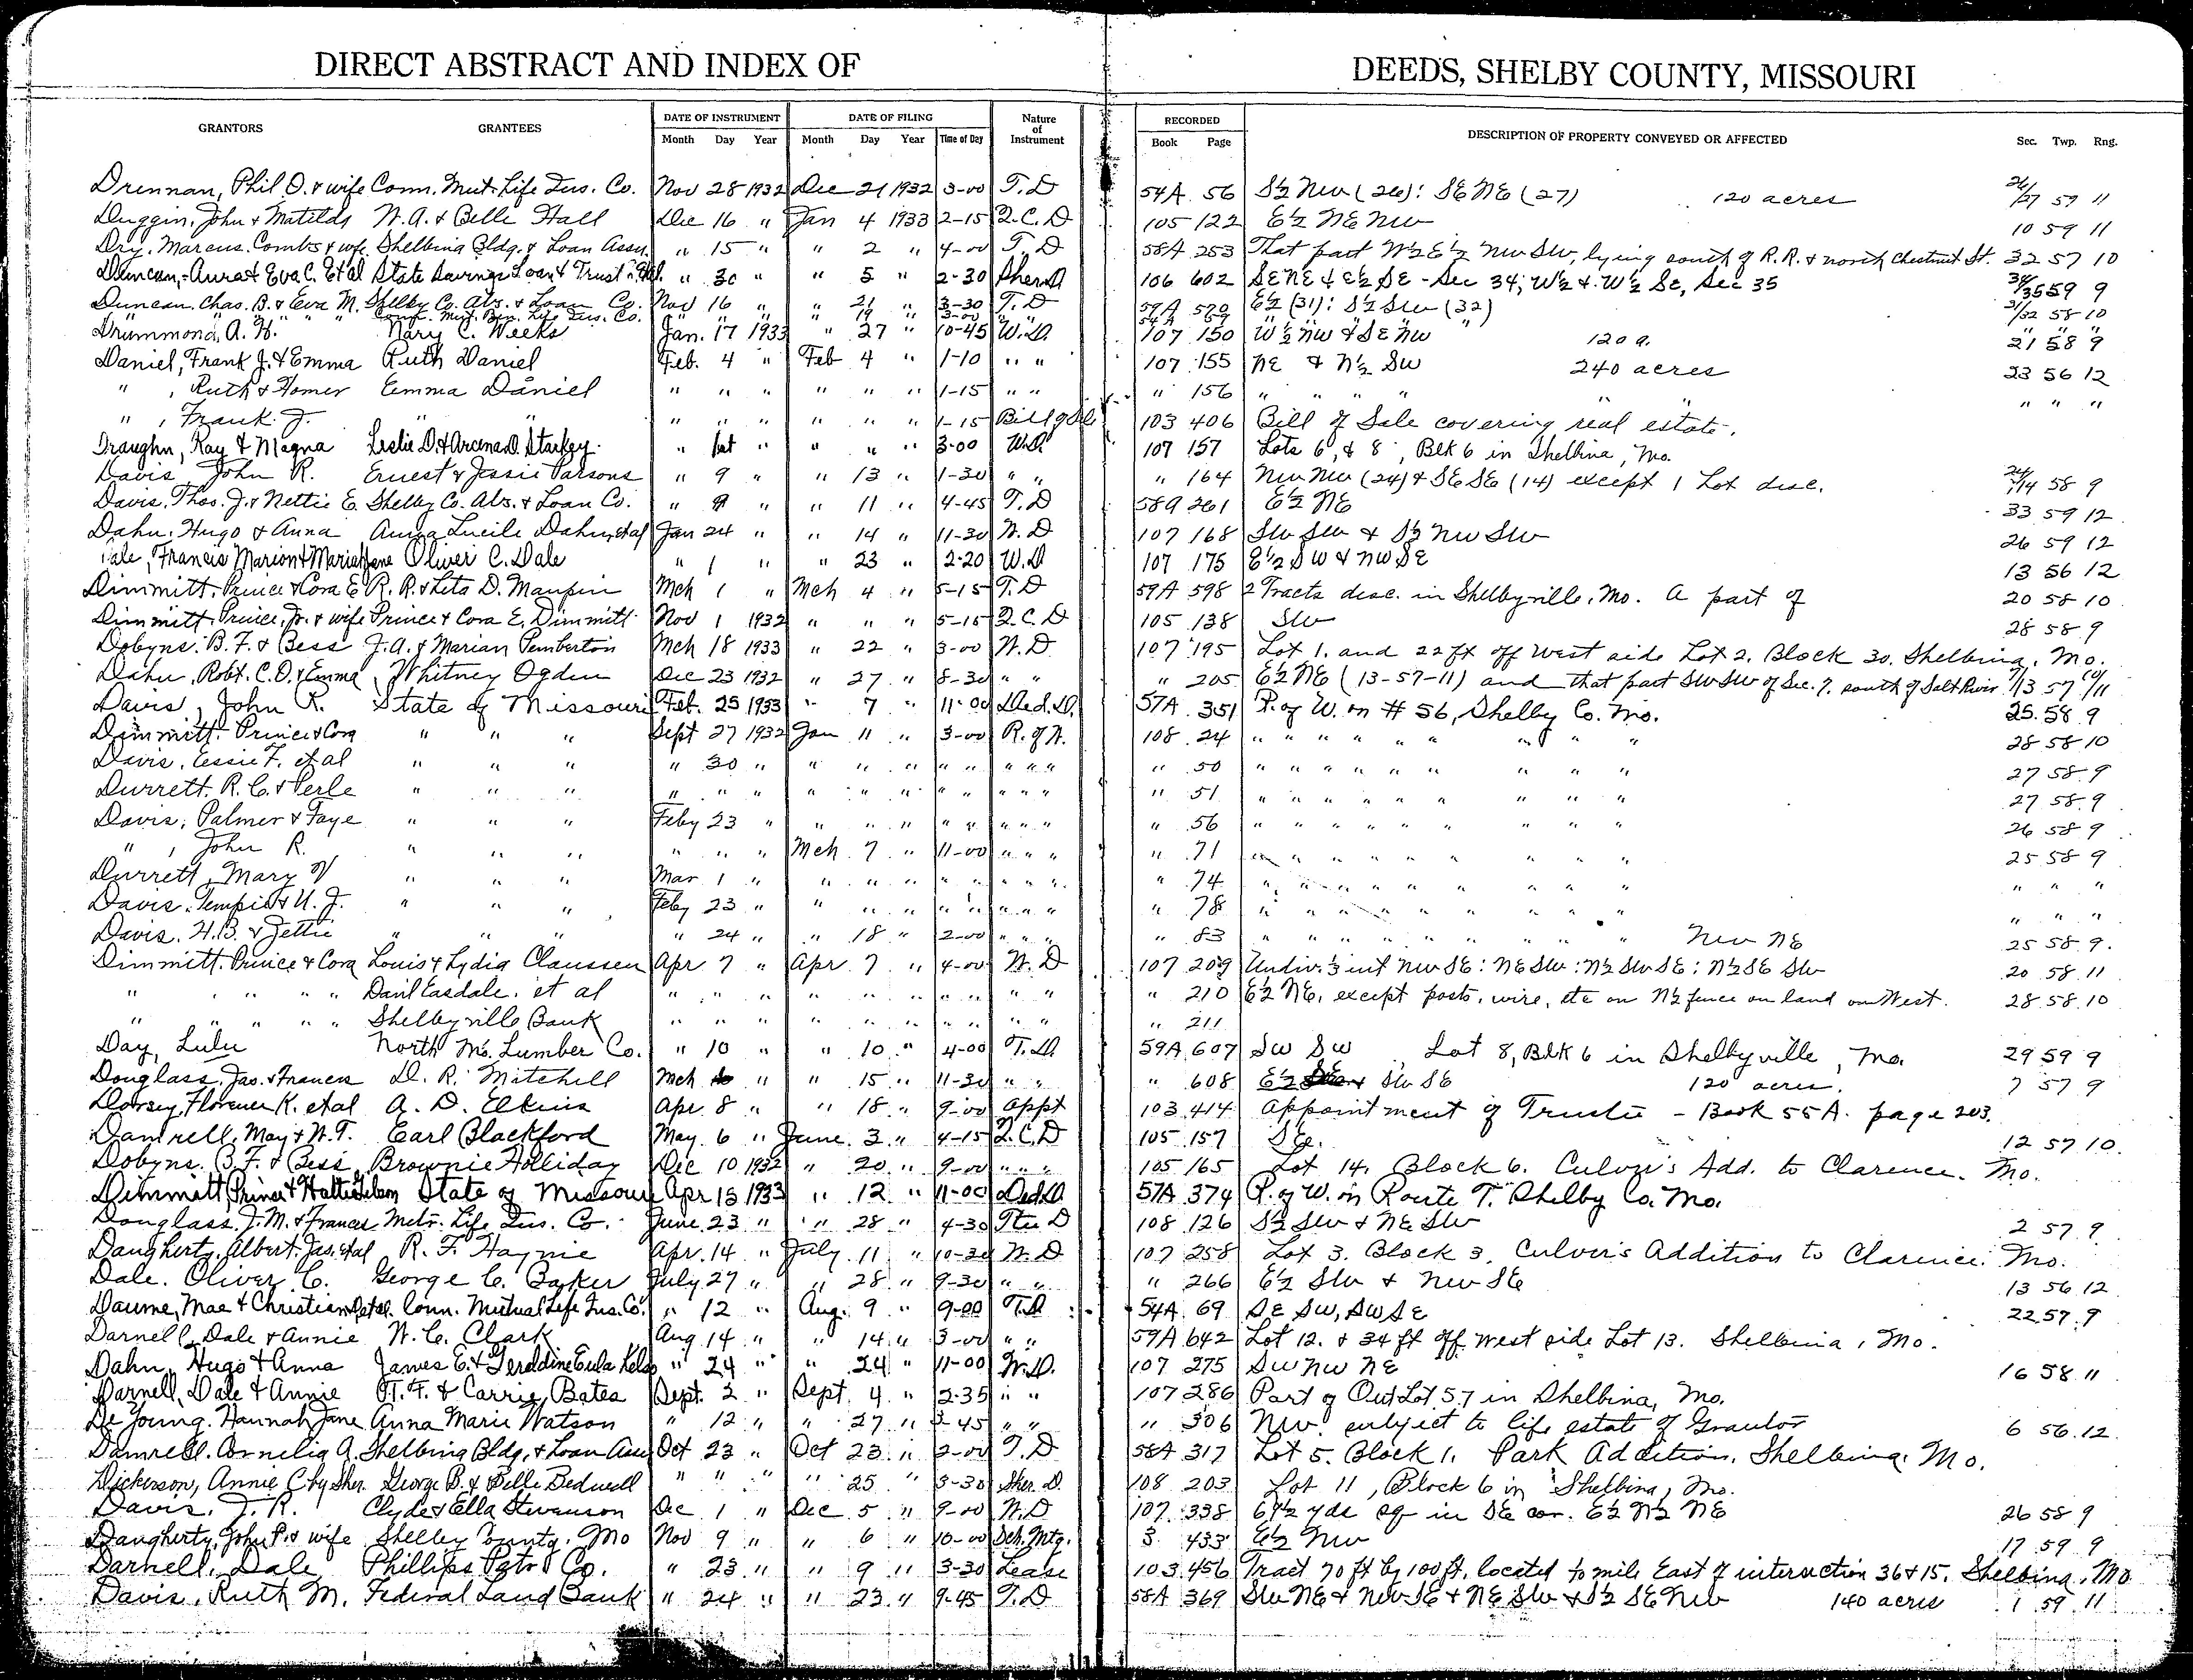 DIRECT ABSTRACT AND INDEX OF DEEDS, SHELBY COUNTY, MISSOURI
GRANTORS GRANTEES DATE OF INSTRUMENT DATE OF FILING Nature of Instrument RECORDED DESCRIPTION OF PROPERTY CONVEYED OR AFFECTED Sec. Twp. Rng.
Month Day Year Month Day Year Time of Day Book Page
Drennan, Phil O. & wife Conn. Mut. Life Ins. Co. Nov 28 1932 Dec 21 1932 3-00 T. D 54A 56 S½ NW (26): SE NE (27) 120 acres 26/27 59 11
Duggin, John & Matilda W. A. & Belle Hall Dec 16 " Jan 4 1933 2-15 Q. C. D 105 122 E½ NE NW 10 59 11
Dry, Marcus Combs & wife Shelbina Bldg. & Loan Assn. " 15 " " 2 " 4-00 T. D 58A 253 That part W½ E½ NW SW, lying south of R.R. & north Chestnut St. 32 57 10
Duncan, Aura & Eva C. Et al State Savings Loan & Trust " 30 " " 5 " 2-30 Sher. D 106 602 SE NE & E½ SE - Sec 34; W½ & W½ SE, Sec 35 34/35 59 9
Duncan, Chas. B. & Eva M. Shelby Co. Abs. & Loan Co. Nov 16 " " 21 " 3-30 T. D 59A 570 E½ (31): S½ SW (32) 31/32 58 10
" " " " Mut. Ben. Life Ins. Co. " " " " 19 " 3-00 " 54A " " " " " "
Drummond, A. W. Mary C. Weeks Jan. 17 1933 " 27 " 10-45 W. D. 107 150 W½ NW & SE NW 120 a. 21 58 9
Daniel, Frank J. & Emma Ruth Daniel Feb. 4 " Feb 4 " 1-10 " " 107 155 NE & N½ SW 240 acres 23 56 12
" , Ruth & Homer Emma Daniel " " " " " " 1-15 " " " 156 " " " " " " " " "
" , Frank J. " " " " " " " " 1-15 Bill of Sale 103 406 Bill of Sale covering real estate.
Draughn, Ray & Magna Leslie D. & Arcena D. Starkey " 1st " " " " 3-00 W.D. 107 157 Lots 6, & 8, Blk 6 in Shelbina, Mo.
Davis John R. Ernest & Jessie Parsons " 9 " " 13 " 1-30 " " " 164 NW NW (24) & SE SE (14) except 1 Lot desc. 24/14 58 9
Davis, Thos. J. & Nettie E. Shelby Co. Abs. & Loan Co. " 9 " " 11 " 4-45 T. D 58A 261 E½ NE 33 59 12
Dahn, Hugo & Anna Anna Lucile Dahn, et al Jan 24 " " 14 " 11-30 W. D 107 168 SW SW & S½ NW SW 26 59 12
Dale, Francis Marion & Maria Jane Oliver C. Dale " 1 " " 23 " 2-20 W. D 107 175 E½ SW & NW SE 13 56 12
Dimmitt, Prince & Cora E. R. R. & Leta D. Maupin Mch 1 " Mch 4 " 5-15 T. D 59A 598 2 Tracts desc. in Shelbyville, Mo. A part of 20 58 10
Dimmitt, Prince, Jr. & wife Prince & Cora E. Dimmitt Nov 1 1932 " " " 5-15 Q. C. D 105 138 SW 28 58 9
Dobyns, B. F. & Bess J. A. & Marian Pemberton Mch 18 1933 " 22 " 3-00 W. D 107 195 Lot 1. and 22 ft off West side Lot 2. Block 30. Shelbina, Mo.
Dahn, Robt. C. O. & Emma Whitney Ogden Dec 23 1932 " 27 " 8-30 " " " 205 E½ NE (13-57-11) and that part SW SW of Sec. 7. south of Salt River 7/13 57 10/11
Davis, John R. State of Missouri Feb. 25 1933 " 7 " 11-00 Ded. D. 57A 351 R. of W. on # 56, Shelby Co. Mo. 25 58 9
Dimmitt Prince & Cora " " " Sept 27 1932 Jan 11 " 3-00 R. of W. 108 24 " " " " " " " " " 28 58 10
Davis, Essie F. et al " " " " 30 " " " " " " " " " " 50 " " " " " " " " " 27 58 9
Durrett, R. C. & Perle " " " " " " " " " " " " " " " 51 " " " " " " " " " 27 58 9
Davis, Palmer & Faye " " " Feby 23 " " " " " " " " " " 56 " " " " " " " " " 26 58 9
" , John R. " " " " " " Mch 7 " 11-00 " " " " 71 " " " " " " " " " 25 58 9
Durrett, Mary V " " " Mar 1 " " " " " " " " " " 74 " " " " " " " " " " " "
Davis, Tempie & U. J. " " " Feby 23 " " " " " " " " " " 78 " " " " " " " " " " " "
Davis, H. B. & Jettie " " " " 24 " " 18 " 2-00 " " " " 83 " " " " " " " " " NW NE 25 58 9
Dimmitt, Prince & Cora Louis & Lydia Claussen Apr 7 " Apr 7 " 4-00 W. D 107 209 Undiv. ⅓ int NW SE: NE SW: N½ SW SE: N½ SE SW 20 58 11
" " " " Davil Easdale, et al " " " " " " " " " " " 210 E½ NE, except posts, wire, etc on N½ fence on land on West. 28 58 10
" " " " Shelbyville Bank " " " " " " " " " " " 211
Day, Lulu North Mo. Lumber Co. " 10 " " 10 " 4-00 T. D. 59A 607 SW SW Lot 8, Blk 6 in Shelbyville, Mo. 29 59 9
Douglass, Jas. & Frances D. R. Mitchell Mch " " 15 " 11-30 " " " 608 E½ SW SE 120 acres. 7 57 9
Dorsey, Florence K. et al A. D. Elkins Apr. 8 " " 18 " 9-00 Appt 103 414 Appointment of Trustee - Book 55A. page 203.
Damrell, May & W. T. Earl Blackford May 6 " June 3 " 4-15 Q. C. D 105 157 SE. 12 57 10
Dobyns, B. F. & Bess Brownie Holliday Dec 10 1932 " 20 " 9-00 " " " 105 165 Lot 14. Block 6. Culver's Add. to Clarence. Mo.
Dimmitt, Prince & State of Missouri Apr 15 1933 " 12 " 11-00 Ded. D 57A 374 R. of W. on Route T. Shelby Co. Mo.
Douglass, J. M. & Frances Metr. Life Ins. Co. June 23 " " 28 " 4-30 Ttee D 108 126 S½ SW & NE SW 2 57 9
Daugherty, Albert. Jas. et al R. F. Haynie Apr. 14 " July 11 " 10-30 W. D 107 258 Lot 3. Block 3. Culver's Addition to Clarence. Mo.
Dale. Oliver C. George C. Baker July 27 " " 28 " 9-30 " " " 266 E½ SW & NW SE 13 56 12
Daume, Mae & Christian et al. Conn. Mutual Life Ins. Co. " 12 " Aug. 9 " 9-00 T. D 54A 69 SE SW, SW SE 22 57 9
Darnell, Dale & Annie W. C. Clark Aug 14 " " 14 " 3-00 " " 59A 642 Lot 12. & 34 ft off West side Lot 13. Shelbina, Mo.
Dahn, Hugo & Anna James E. & Gerddine Eula Kelso " 24 " " 24 " 11-00 W. D. 107 275 SW NW NE 16 58 11
Darnell, Dale & Annie O. F. & Carrie Bates Sept. 2 " Sept. 4 " 2-35 " " 107 286 Part of Out Lot 57 in Shelbina, Mo.
De Young. Hannah Jane Anna Marie Watson " 12 " " 27 " 3-45 " " " 306 NW subject to life estate of Grantor 6 56 12
Damrell. Cornelia A. Shelbina Bldg. & Loan Assn Oct 23 " Oct 23 " 2-00 T. D 58A 317 Lot 5. Block 1. Park Addition. Shelbina, Mo.
Dickerson, Annie C by Sher. George B. & Belle Bedwell " " " " 25 " 3-30 Sher. D. 108 203 Lot 11, Block 6 in Shelbina, Mo.
Davis, J. R. Clyde & Ella Stevenson Dec 1 " Dec 5 " 9-00 W. D 107 338 69½ yds sq in SE cor. E½ N½ NE 26 58 9
Daugherty, John P. & wife Shelby County, Mo Nov 9 " " 6 " 10-00 Sch. Mtg. 3 433 E½ NW 17 59 9
Darnell, Dale Phillips Petr. Co. " 23 " " 9 " 3-30 Lease 103 456 Tract 70 ft by 100 ft. located ½ mile East of intersection 36 & 15, Shelbina, Mo
Davis, Ruth M. Federal Land Bank " 24 " " 23 " 9-45 T. D 58A 369 SW NE & NW SE & NE SW & S½ SE NW 140 acres 1 59 11